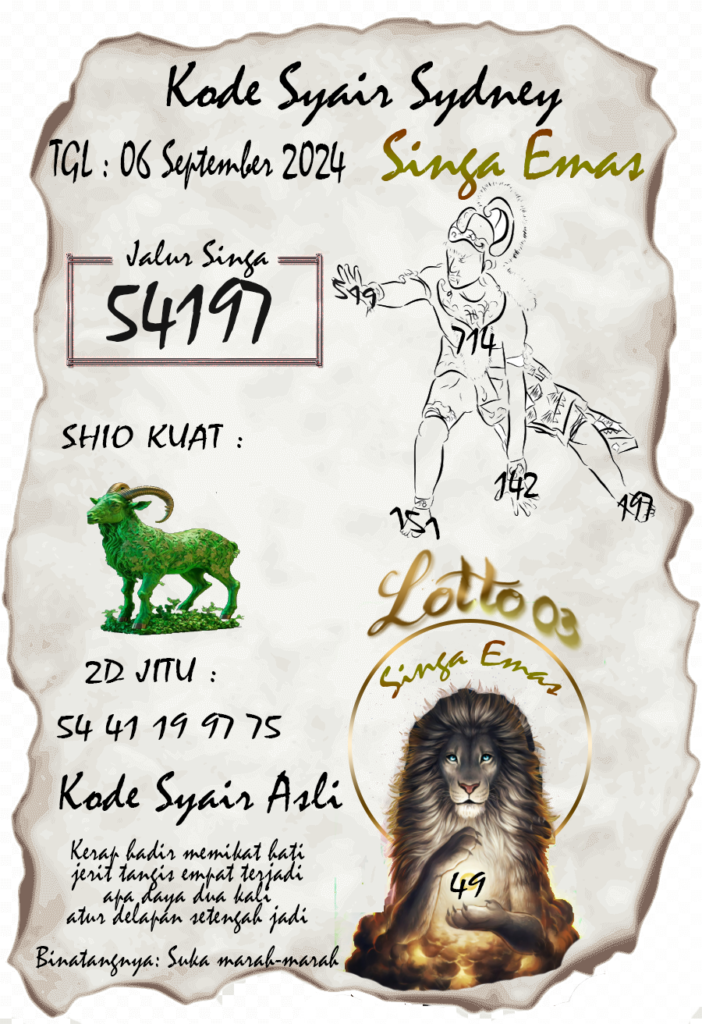 Kode Syair Sydney
TGL : 06 September 2024
Singa Emas
Jalur Singa
54197
549
714
142
151
497
SHIO KUAT :
Lotto 03
Singa Emas
2D JITU :
54 41 19 97 75
Kode Syair Asli
Kerap hadir memikat hati
jerit tangis empat terjadi
apa daya dua kali
atur delapan setengah jadi
49
Binatangnya: Suka marah-marah